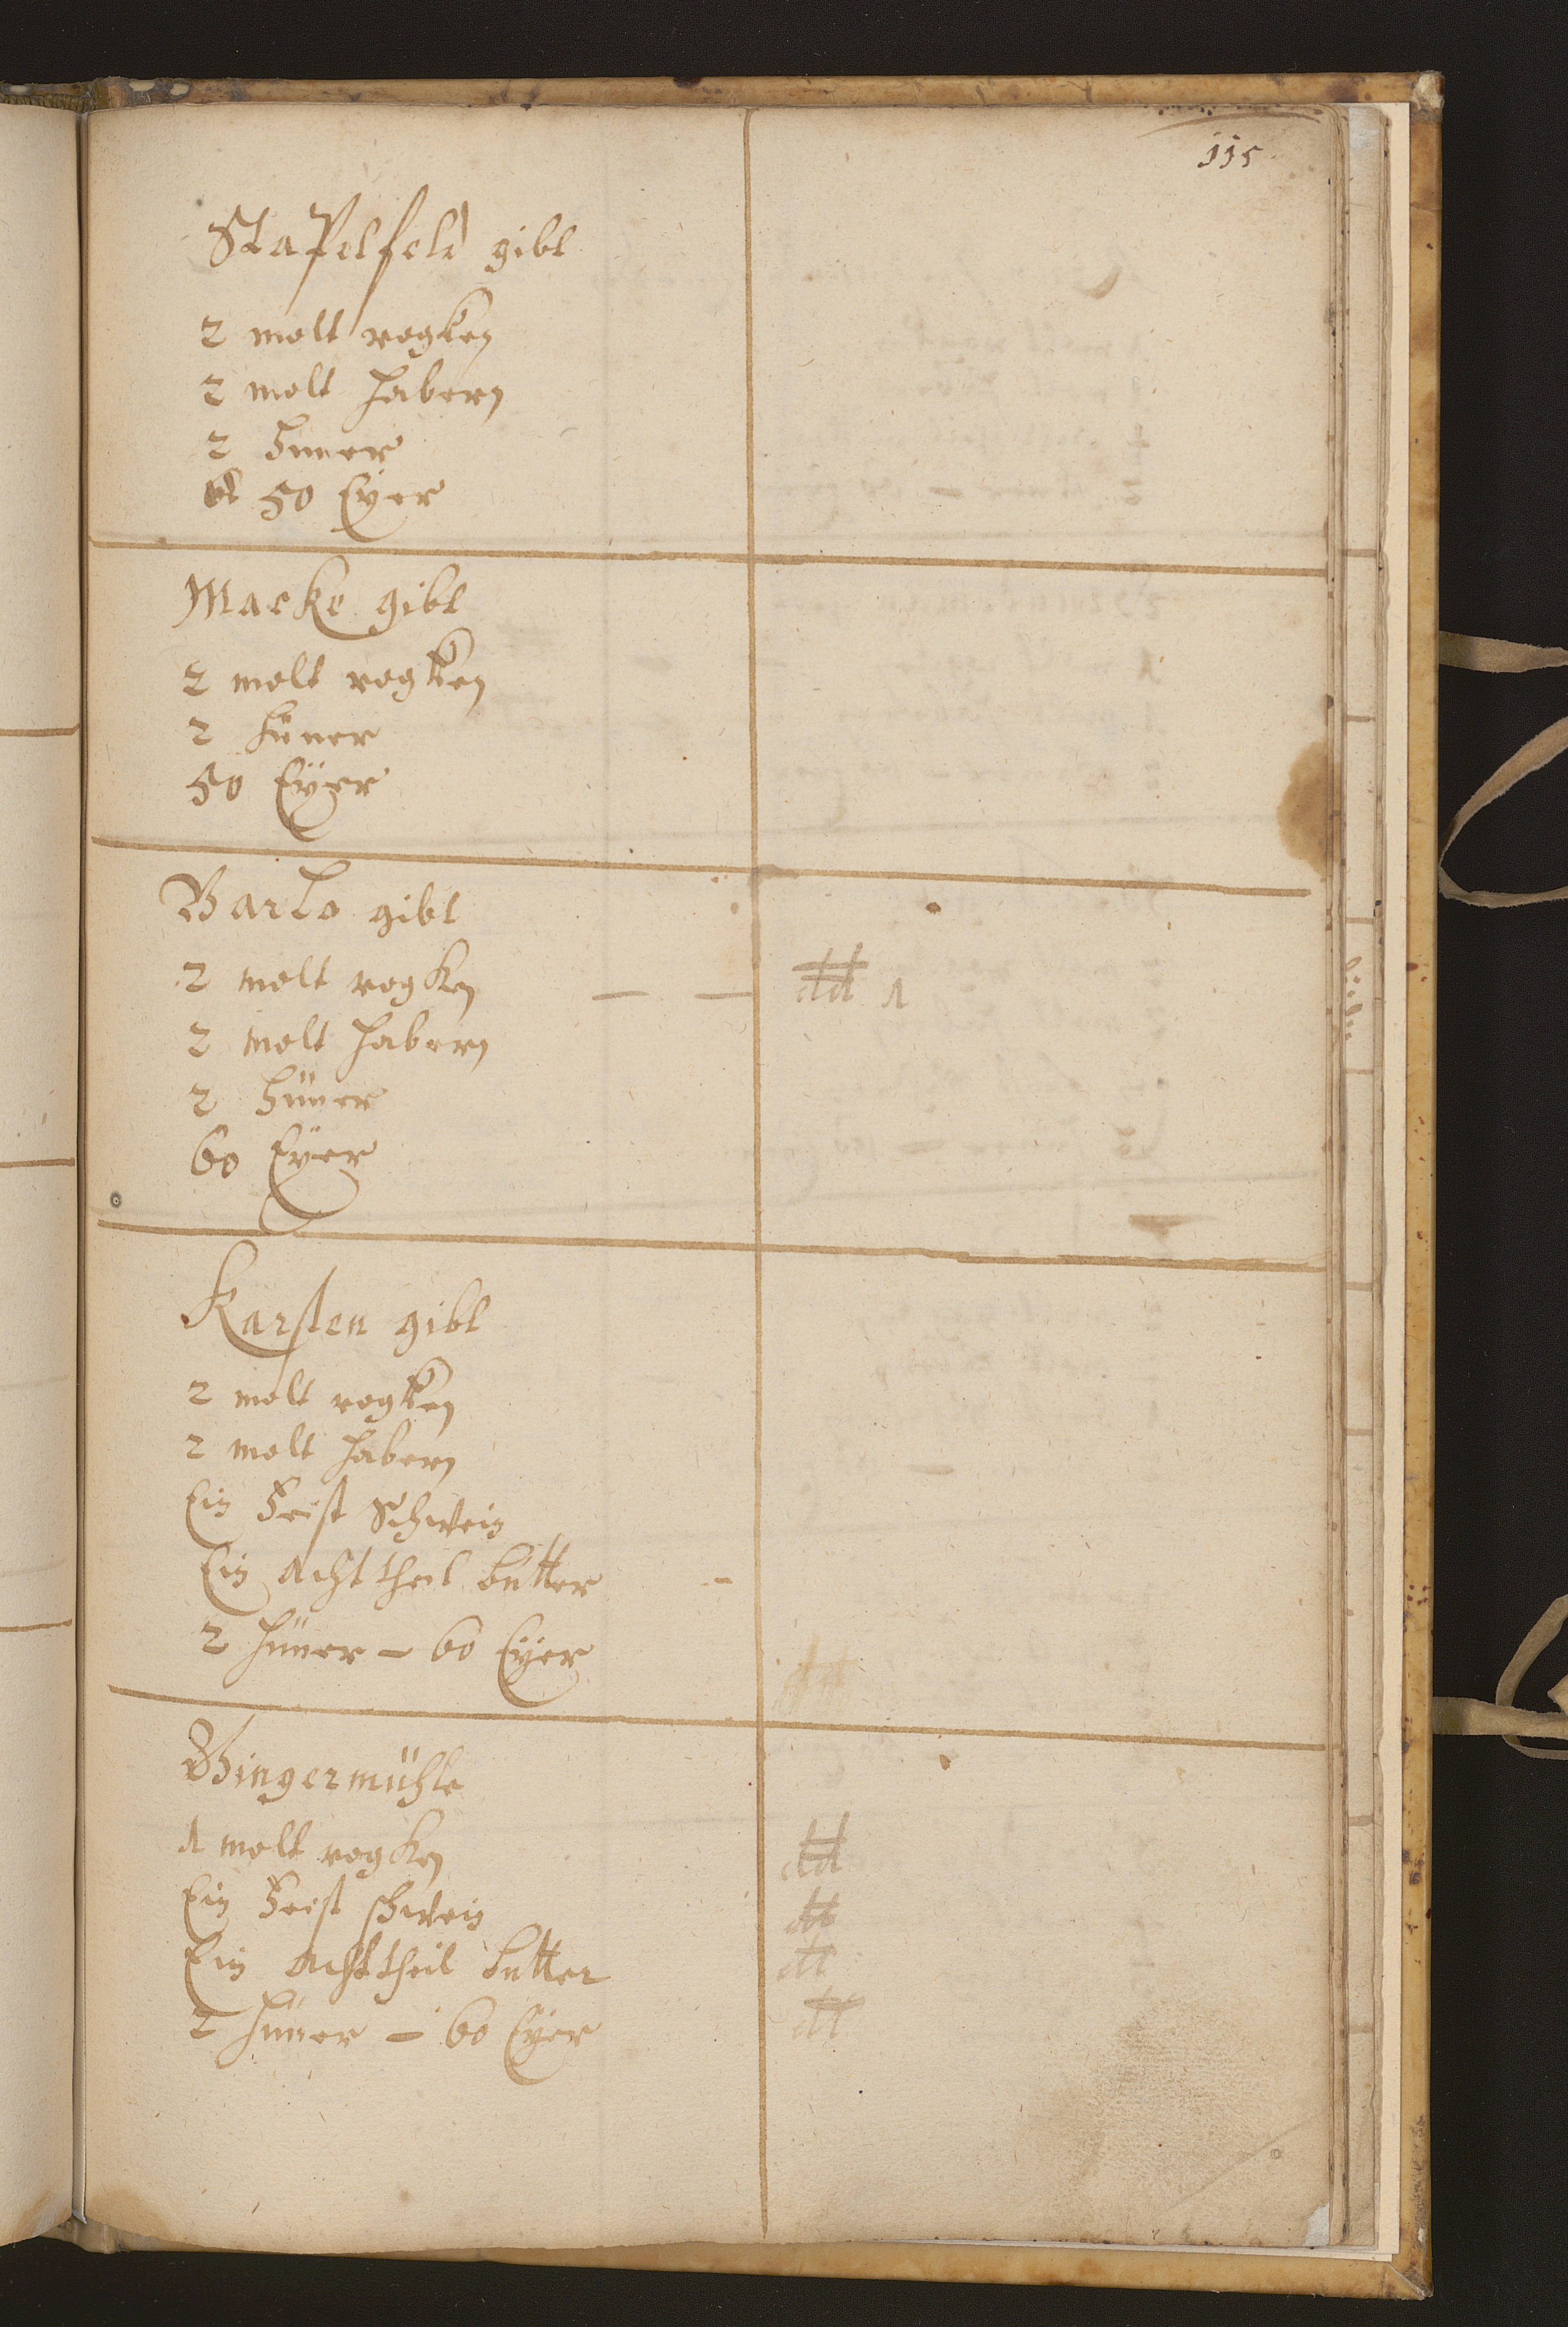 115
Stapelfeld gibt
2 molt rogken
2 molt habern
2 Huner
50 Eyer
Macke gibt
2 molt rogken
2 hüner
50 Eÿer
Barlo gibt
2 molt rogken — — dd 1
2 molt habern
2 Hüner
60 Eÿer
Karsten gibt
2 molt rogken
2 molt habern
Ein Feist Schwein
Ein acht theil butter -
2 hüner – 60 Eÿer
Bingermühle
1 molt rogken dd
Ein Feist schwein dd
Ein acht theil butter dt
2 hüner – 60 Eÿer dt